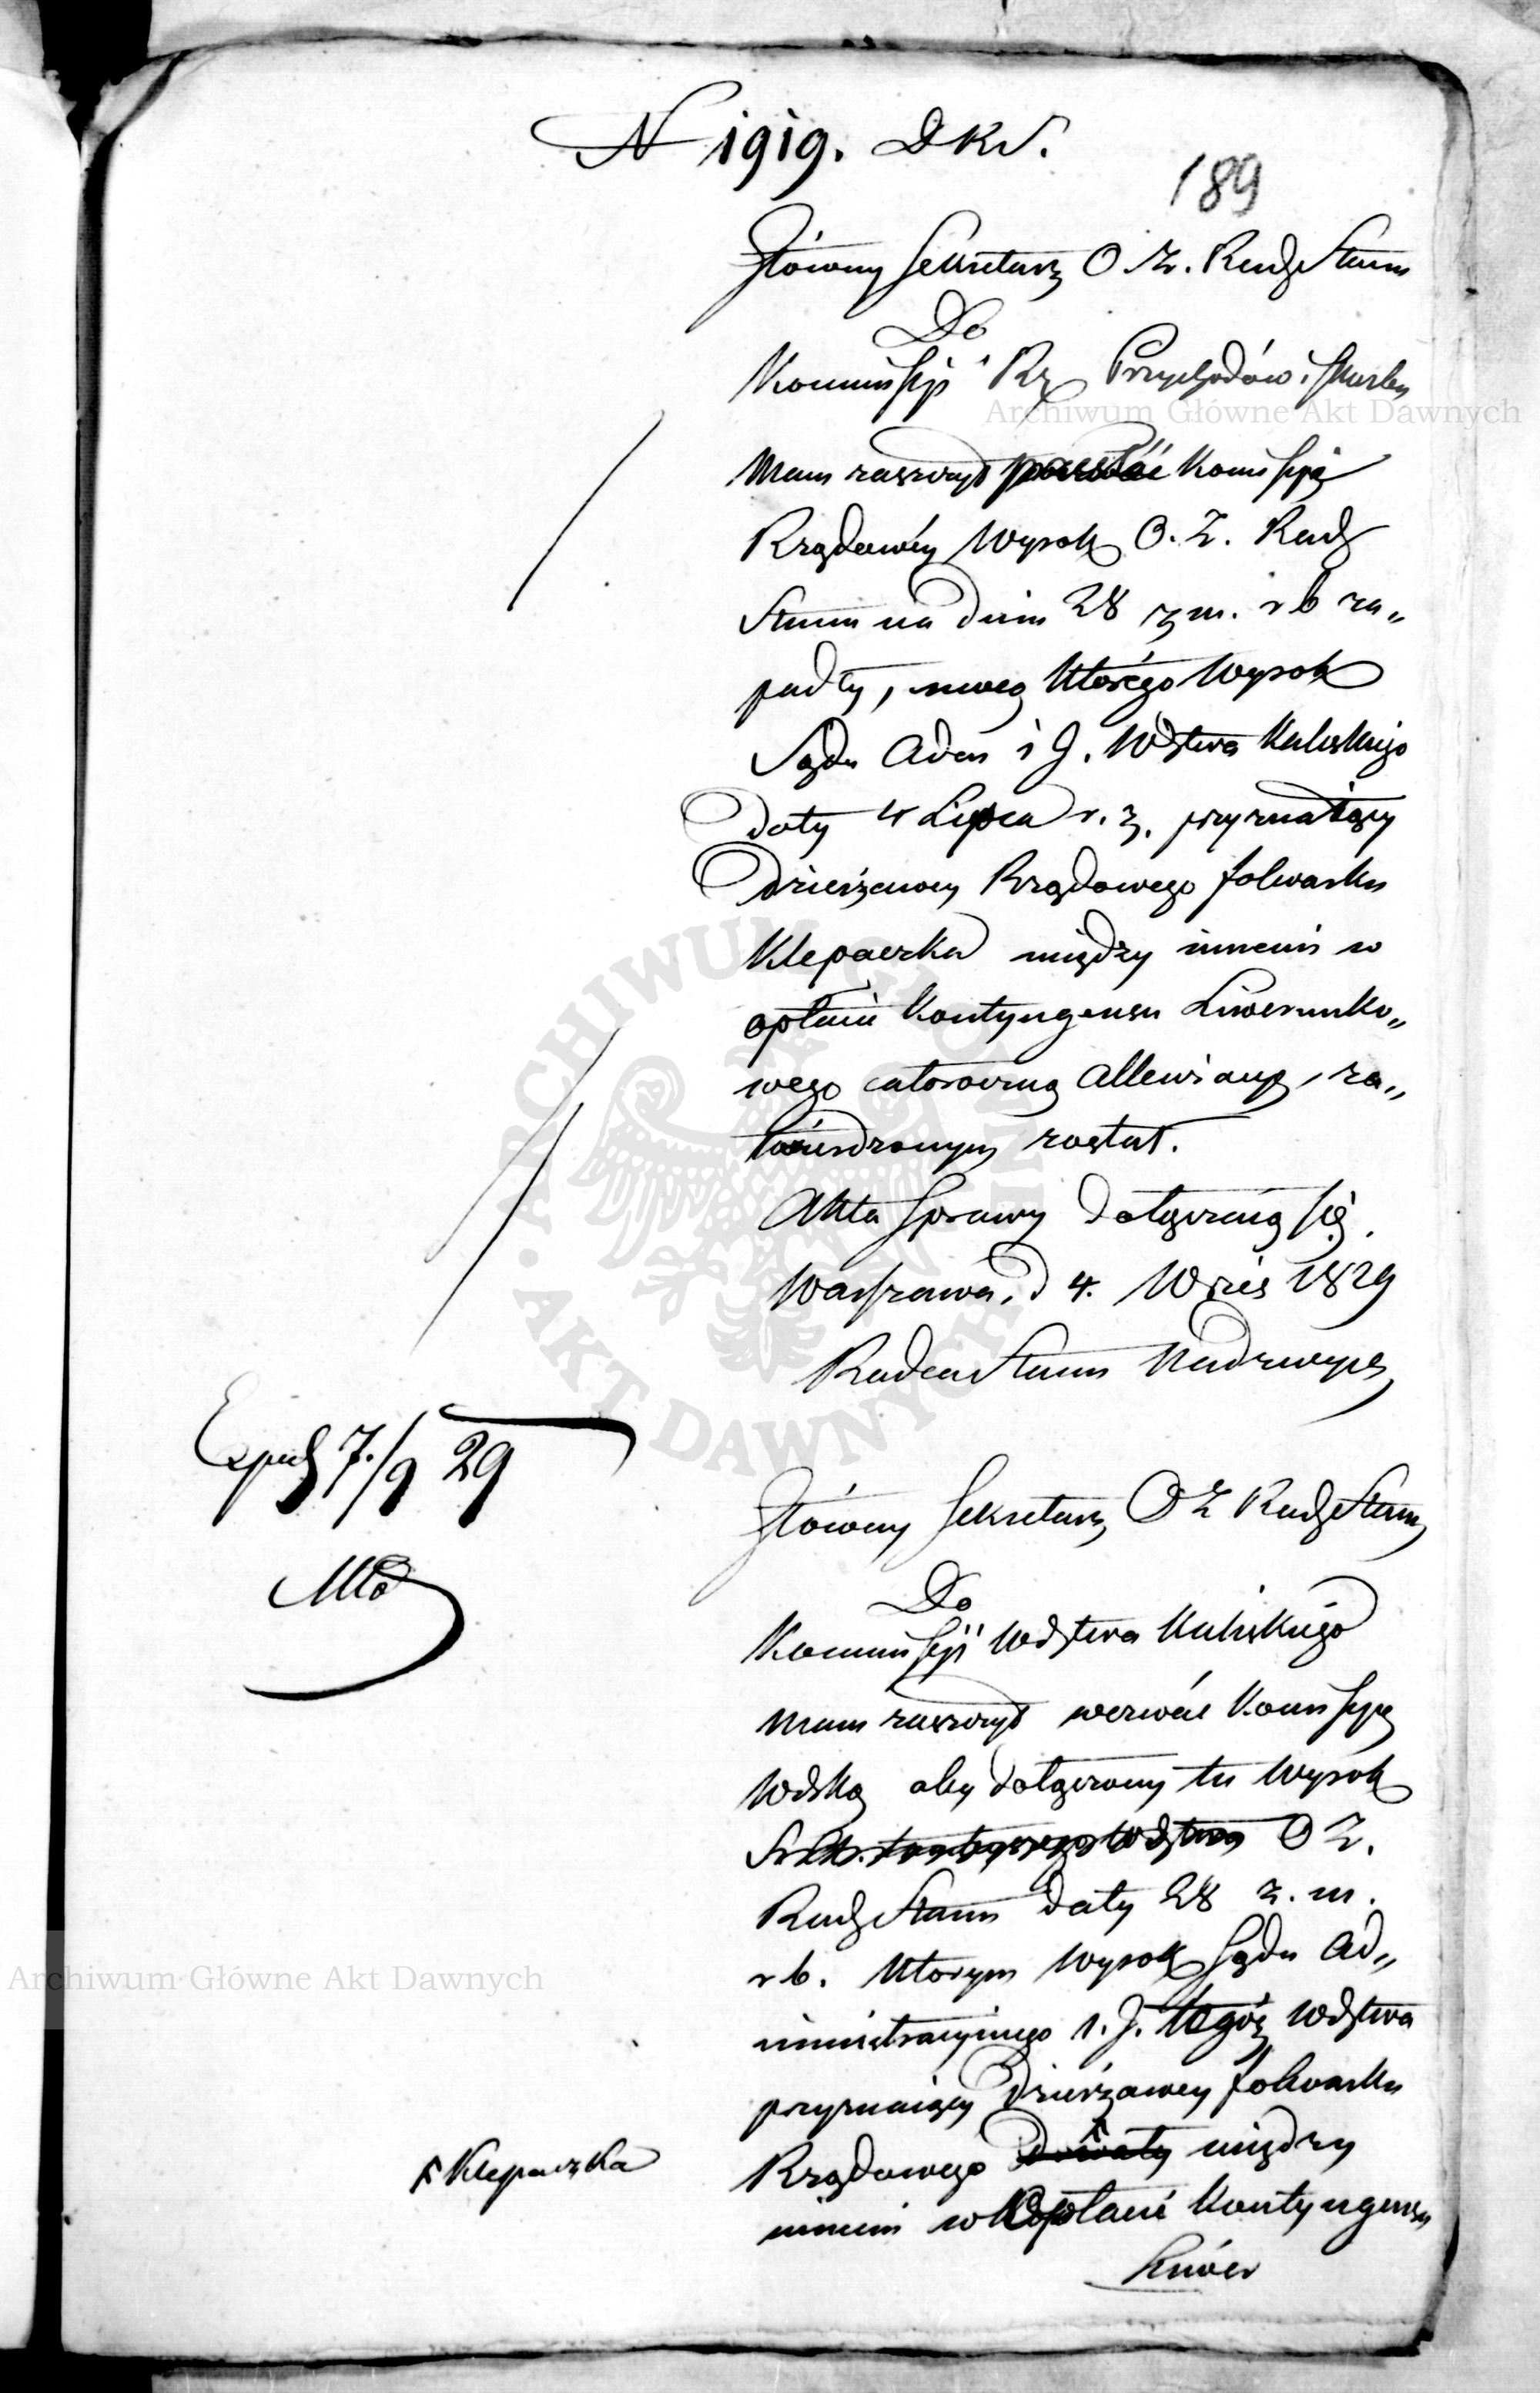 N 1919. DKS.
189
Główny Sekretarz O. Z. Rady Stanu
Do
Kommissyi Rz Przychodów i Skarbu
Mam zaszczyt przesłać Kommissyi
Rządowéy Wyrok O. Z. Rady
Stanu na dniu 28 z. m. r b za„
padły, mocą którego Wyrok
Sądu Adm i S. Wdztwa Kaliskiego
daty 4 Lipca r. z. przyznaiący
Dzierżawcy Rządowego folwarku
Klepaczka między innemi w
opłacie kontyngensu Liwerunko„
wego allewiacyą, za„
twierdzonym został.
Akta sprawy dołączaią się.
Warszawa, d 4. Wrześ 1829
Radca Stanu
Exped 7./9 29
Główny Sekretarz O Z Rady Stanu
Do
Kommissyi Wdztwa Kaliskiego
Mam zaszczyt wezwać Kommissyą
Wdzką aby dołączony tu Wyrok
O Z.
Rady Stanu daty 28 z. m.
r b. którym Wyrok Sądu Ad„
ministracyinego i. S. tegóż Wdztwa
przyznaiący Dzierżawcy folwarku
Rządowego między
Klepaczka
innemi w opłacie kontyngensu
Liwer
Archiwum Główne Akt Dawnych
Archiwum Główne Akt Dawnych
ARCHIWUM GŁÓWNE AKT DAWNYCH